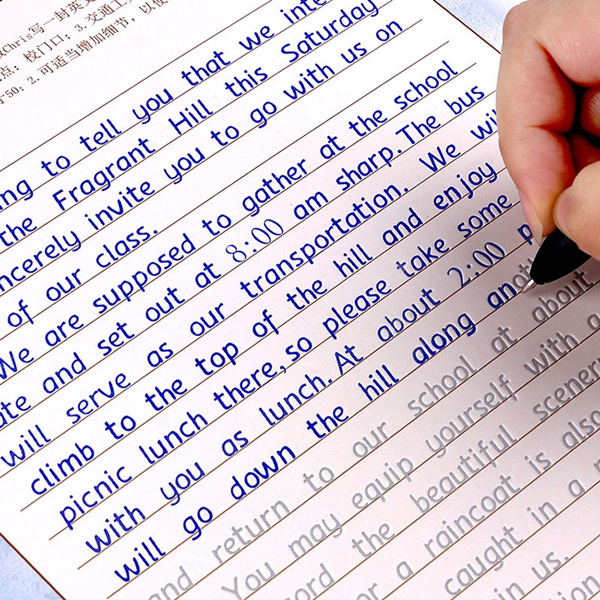 Chris写一封英文
点: 校门口; 3. 交通工
50; 2. 可适当增加细节, 以使
to tell you that we
the Fragrant Hill this Saturday
invite you to go with us on
of our class.
We are supposed to gather at the school
and set out at 8:00 am sharp. The bus
will serve as our transportation. We
climb to the top of the hill and enjoy
picnic lunch there, so please take some
with you as lunch. At about 2:00
will go down the hill along
and return to our school at about
You may equip yourself with a
the beautiful
a raincoat is also
caught in a
us.